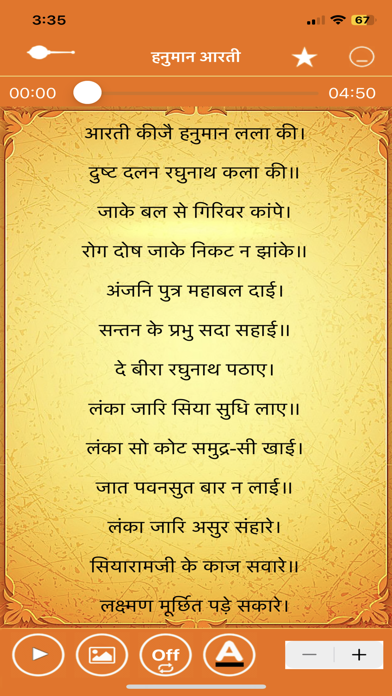 3:35
67
हनुमान आरती
00:00
04:50
आरती कीजै हनुमान लला की।
दुष्ट दलन रघुनाथ कला की॥
जाके बल से गिरिवर कांपे।
रोग दोष जाके निकट न झांके॥
अंजनि पुत्र महाबल दाई।
सन्तन के प्रभु सदा सहाई॥
दे बीरा रघुनाथ पठाए।
लंका जारि सिया सुधि लाए॥
लंका सो कोट समुद्र-सी खाई।
जात पवनसुत बार न लाई॥
लंका जारि असुर संहारे।
सियारामजी के काज सवारे॥
लक्ष्मण मूर्छित पड़े सकारे।
Off
A